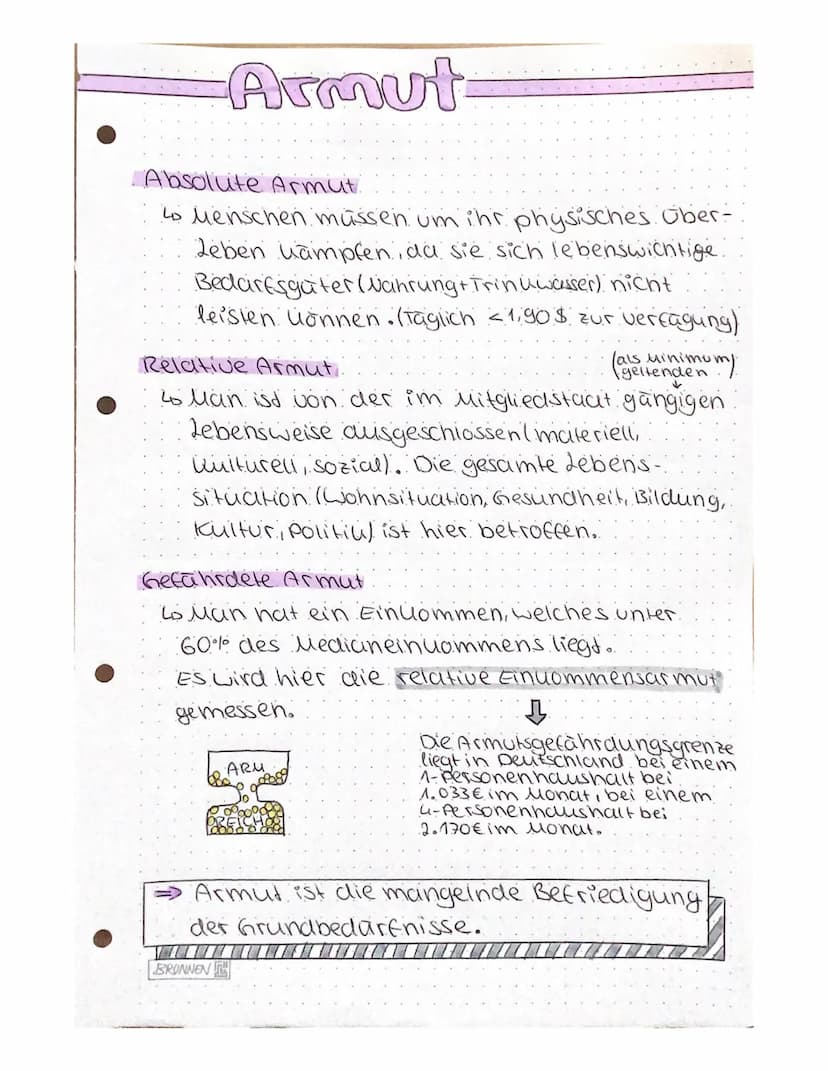 Armut
Absolute Armut
↳ Menschen müssen um ihr physisches Über-
leben kämpfen, da sie sich lebenswichtige
Bedarfsgüter (Nahrung + Trinkwasser) nicht
leisten können. (Täglich < 1,90$ zur Verfügung)
Relative Armut
(als Minimum
geltenden)
↳ Man ist von der im Mitgliedstaat gängigen
Lebensweise ausgeschlossen (materiell,
kulturell, sozial). Die gesamte Lebens-
situation (Wohnsituation, Gesundheit, Bildung,
Kultur, Politik) ist hier betroffen.
Gefährdete Armut
↳ Man hat ein Einkommen, welches unter
60% des Medianeinkommens liegt.
Es wird hier die relative Einkommensarmut
gemessen.
Die Armutsgefährdungsgrenze
liegt in Deutschland bei einem
1-Personenhaushalt bei
1.033€ im Monat, bei einem
4-Personenhaushalt bei
2.170€ im Monat.
ARM
REICH
⇒ Armut ist die mangelnde Befriedigung
der Grundbedürfnisse.
BRONNEN